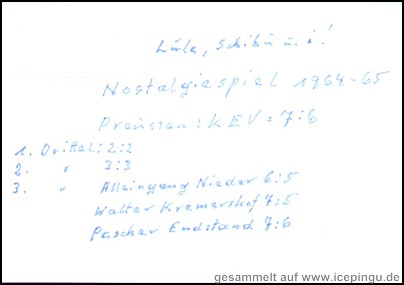 Lula, Schibü u. i!
Nostalgiespiel 1964-65
Preussen : KEV = 7:6
1. Drittel: 2:2
2. " 3:3
3. " Alleingang Nieder 6:5
Walter Kremershof 7:5
Pascher Endstand 7:6
gesammelt auf www.icepingu.de